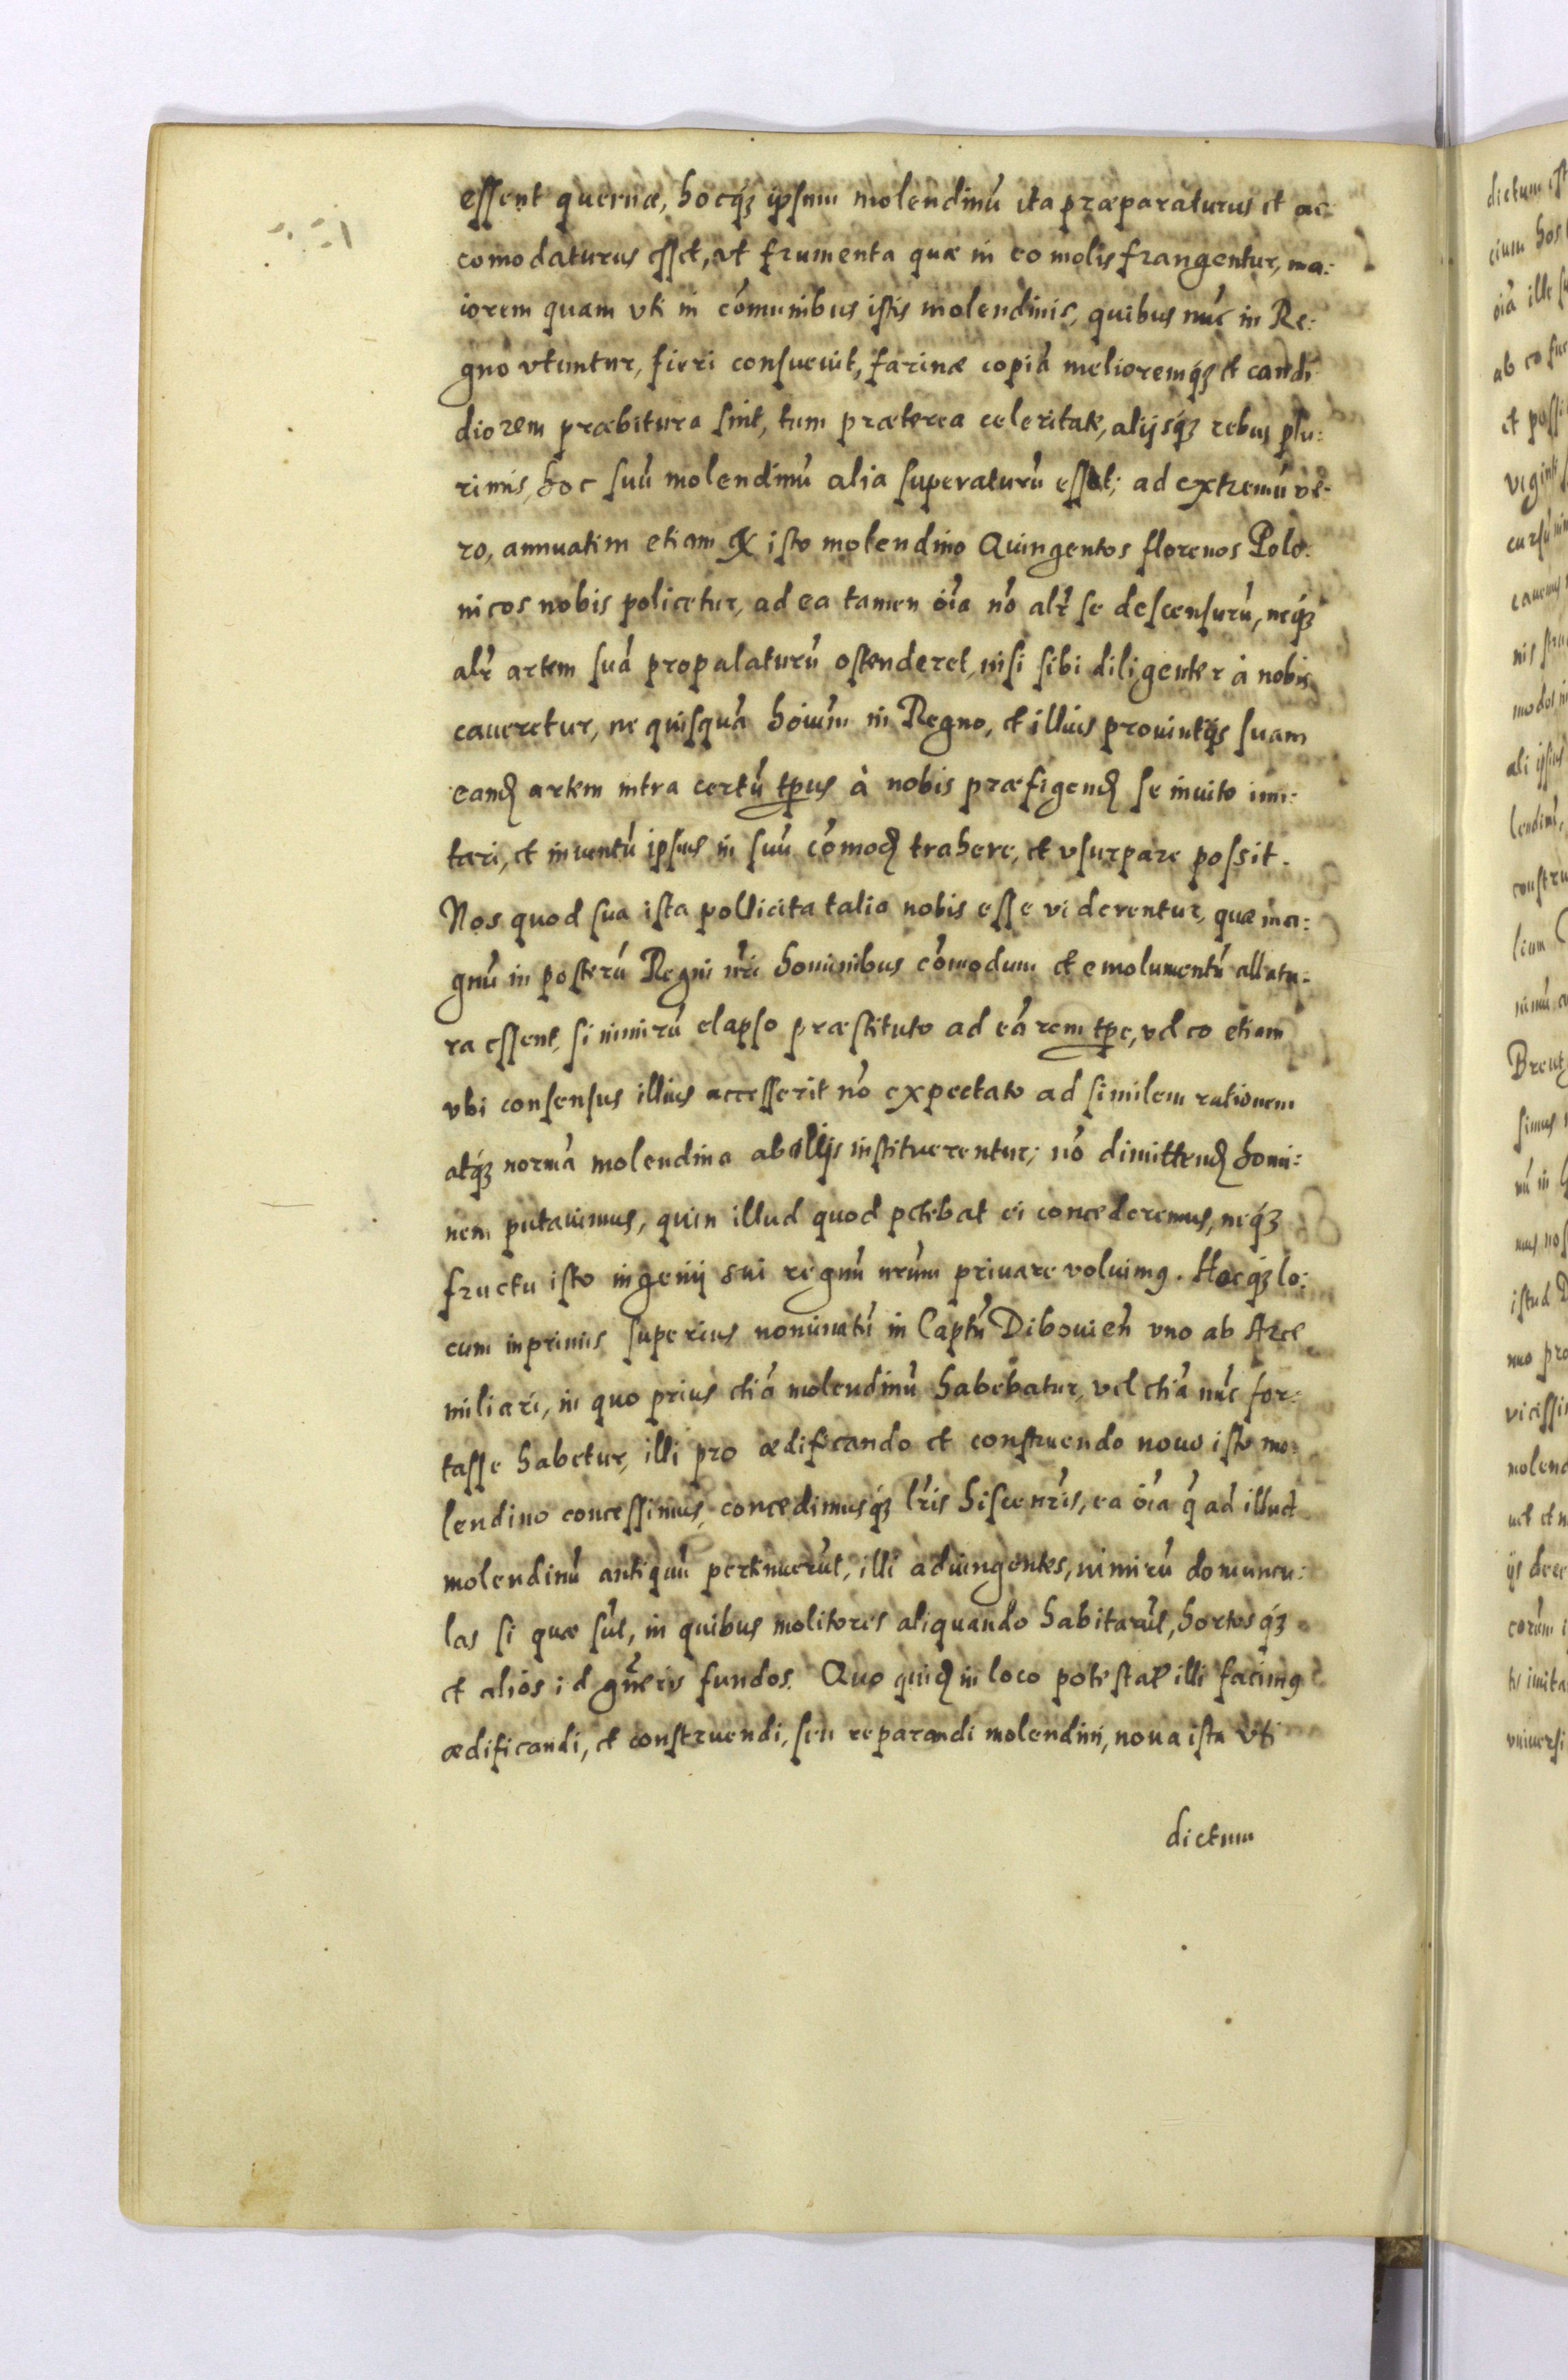 essent quernæ, hocq́ꝫ ipsum molendinũ ita præparaturus et ac
comodaturus esset, vt frumenta quæ in eo molis frangentur, ma:
iorem quam vti in cõmunibus istis molendinis, quibus nũc in Re:
gno vtuntur, fieri consueuit, farinæ copiã melioremq́ꝫ et candi
diorem præbitura sint, tum præterea celeritate, alijsq́ꝫ rebus plu:
rimis, hoc suũ molendinũ alia superaturũ esset; ad extremũ ve:
ro, annuatim etiam ex isto molendino Quingentos florenos Polo:
nicos nobis policetur, ad ea tamen oĩa nõ alr̃ se descensurũ, neq́ꝫ
alr̃ artem suã propalaturũ ostenderet, nisi sibi diligenter à nobis
caueretur, ne quisquã hoĩum in Regno, et illius prouintijs suam
eandẽ artem intra certũ tp̃us à nobis præfigendũ se inuito imi:
tari, et inuentũ ipsius in suũ cõmodũ trahere, et vsurpare possit.
Nos quod sua ista pollicita talia nobis esse viderentur, quæ ma:
gnũ in posterũ Regni nr̃i hominibus cõmodum et emolumentũ allatu:
ra essent, si nimirũ elapso præstituto ad eã rem tp̃e, vel eo etiam
vbi consensus illius accesserit nõ expectato ad similem rationem
atq́ꝫ normã molendina ab illis instituerentur; nõ dimittendũ homi:
nem putauimus, quin illud quod petebat ei concederemus, neq́ꝫ
fructu isto ingenij sui regnũ nr̃um priuare voluimꝰ. Hocq́ꝫ lo:
cum inprimis superius nominatũ in Captũ Dibouieñ vno ab Arce
miliari, in quo prius etiã molendinũ habebatur, vel etiã nũc for:
tasse habetur, illi pro ædificando et construendo nouo isto mo:
lendino concessimus, concedimusq́ꝫ lr̃is hisce nr̃is, ea oĩa q̃ ad illud
molendinũ antiquũ pertinuerũt, illi adiungentes, nimirũ domuncu:
las si quæ sũt, in quibus molitores aliquando habitarũt, hortosq́ꝫ
et alios id gñeris fundos. Quo quidẽ in loco potestatẽ illi facimꝰ
ædificandi, et construendi, seu reparandi molendini, noua ista vti
dictum